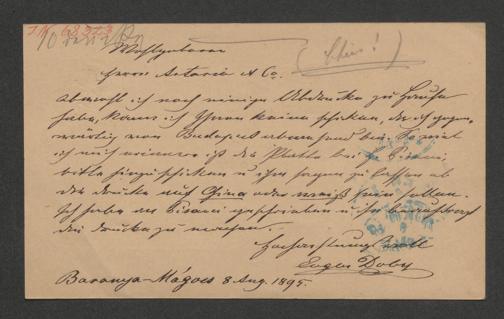 Wohlgeboren
Herrn Artaria & Co.
Obwohl ich noch einige Abdrucke zu Hause
habe, kann ich Ihnen keine schicken, da ich gegen-
wärtig von Budapest abwesend bin. Soviel
ich mich erinnere ist die Platte bei Pisani,
bitte hinzuschicken u ihm sagen zu lassen ob
die drucke auf China oder weiß sein sollen.
Ich habe an Pisani geschrieben u ihn beauftragt
die drucke zu machen.
Hochachtungsvoll
Eugen Doby
Baranya-Mágocs 8 Aug. 1895.